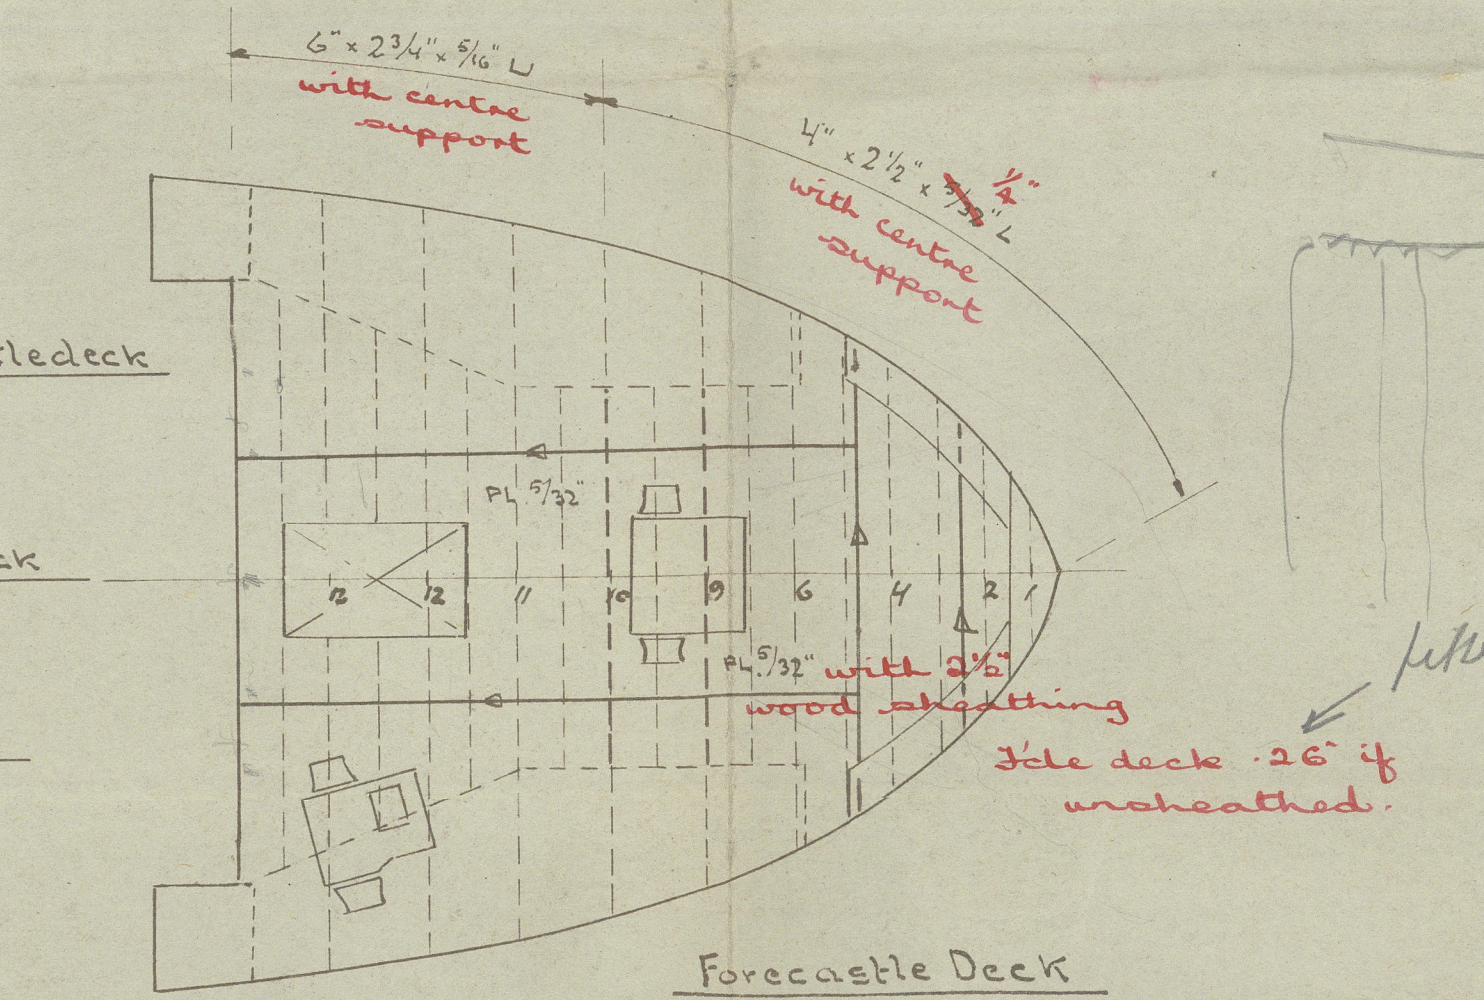 6" x 2 3/4" x 5/16" ⊔
with centre
support
4" x 2 1/2" x 5/32" 1/4" L
with centre
support
tledeck
PL. 5/32"
ck
12 12 11 10 9 6 4 2 1
PL. 5/32" with 2 1/2"
wood sheathing
F'cle deck .26" if
unsheathed.
Forecastle Deck